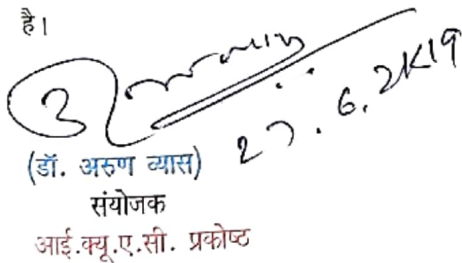 है।
27.6.2K19
(डॉ. अरुण व्यास)
संयोजक
आई.क्यू.ए.सी. प्रकोष्ठ